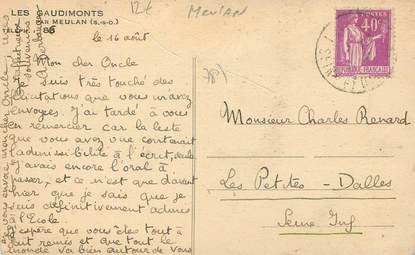 LES GAUDIMONTS
PAR MEULAN (S.-&-O.)
TÉLÉPH. 86
12€
MEULAN
78)
le 16 août
Mon cher Oncle
Je suis très touché des
félicitations que vous m'avez
envoyées. J'ai tardé à vous
en remercier car la liste
que vous avez vue contenait
l'admissibilité à l'écrit, seule
j'avais encore l'oral à
passer, et ce n'est que d'avant
hier que je sais que je
suis définitivement admis
à l'Ecole.
J'espère que vous êtes tout à
fait remis et que tout le
monde va bien autour de vous
mon cher Oncle
40c
POSTES
REPUBLIQUE FRANÇAISE
Monsieur Charles Renard
Les Petites-Dalles
Seine Inf